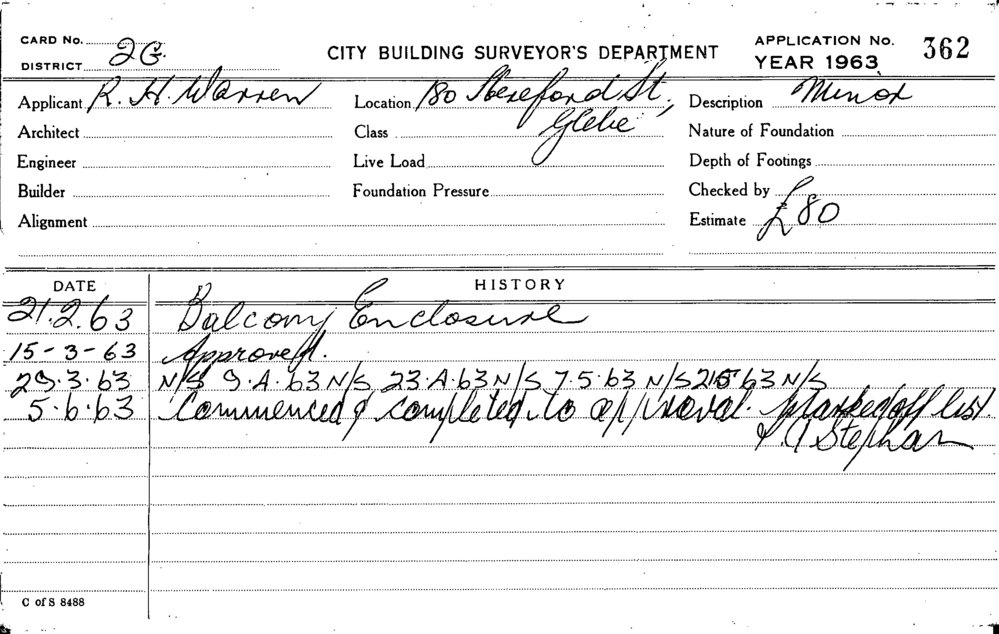 CARD No.
DISTRICT 2G.
CITY BUILDING SURVEYOR'S DEPARTMENT
APPLICATION No. 362
YEAR 1963
Applicant R. H. Warren Location 180 Hereford St, Description Minor
Architect Class Glebe Nature of Foundation
Engineer Live Load Depth of Footings
Builder Foundation Pressure Checked by
Alignment Estimate £80
DATE HISTORY
21.2.63 Balcony Enclosure
15-3-63 Approved.
29.3.63 N/S 9.4.63 N/S 23.4.63 N/S 7.5.63 N/S 21563 N/S
5.6.63 Commenced & completed to approval. Marked off list.
Stephan
C of S 8488